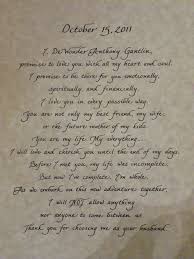 October 15, 2011
I, DeWonder Anthony Gantlin,
promise to love you with all my heart and soul.
I promise to be there for you emotionally,
spiritually, and financially.
I love you in every possible way.
You are not only my best friend, my wife,
or the future mother of my kids.
You are my life. My everything...
I will love and cherish you until the end of my days.
Before I met you, my life was incomplete.
But now I'm complete. I'm whole.
As we embark on this new adventure together,
I will NOT allow anything
nor anyone to come between us.
Thank you for choosing me as your husband.